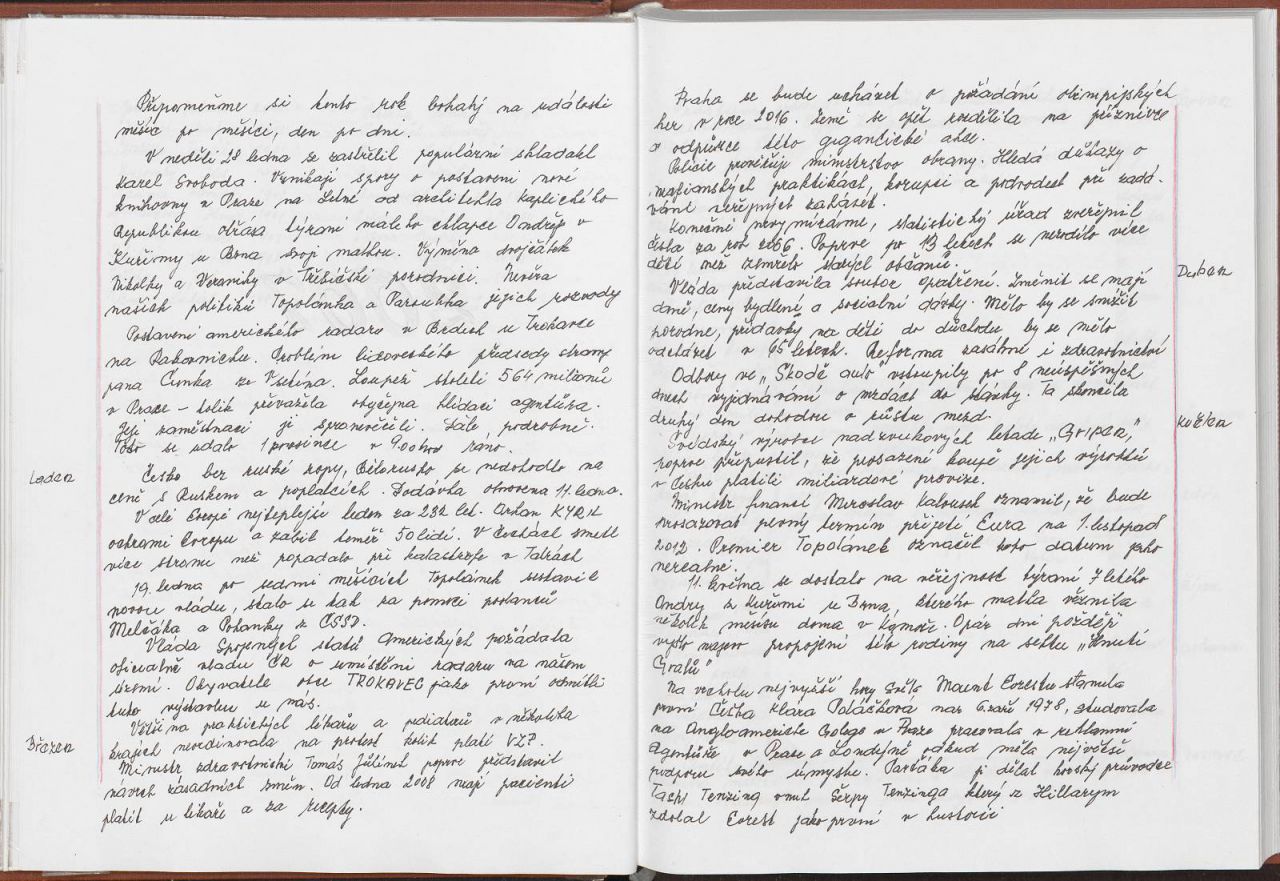 Připomeňme si tento rok bohatý na události
měsíc po měsíci, den po dni.
V neděli 28 ledna se zastřelil populární skladatel
Karel Svoboda. Vznikají spory o postavení nové
knihovny v Praze na Letné od architekta Kaplického
Republikou otřásá týrání malého chlapce Ondřeje v
Kuřimy u Brna svojí matkou. Výměna dvojčátek
Nikolky a Veroniky v Třebíčské porodnici. Nevěra
našich politiků Topolánka a Paroubka jejich rozvody
Postavení amerického radaru v Brdech u Trokavce
na Rakovnicku. Problém lidoveckého předsedy strany
pana Čunka ze Vsetína. Loupež století 564 milionů
v Praze – tolik převažela obyčejna hlídací agentůra.
Její zaměstnaci je spronevěřili. Dále podrobně.
Toto se udalo 1 prosince v 900 hod ráno.
Leden
Česko bez ruské ropy, Bělorusko se nedohodlo na
ceně s Ruskem a poplatcích. Dodávka obnovena 11. ledna.
V celé Evropě nejteplejší leden za 232 let. Orkan KYRIL
ochromi Evropu a zabil téměř 50 lidí. V Čechách smetl
více stromu než popadalo při katastrofe v Tatrách
19. ledna po sedmi měsících Topolánek sestavil
novou vládu, stalo se tak za pomoci poslanců
Melčáka a Pohanky z ČSSD.
Vláda Spojených statů Amerických požádala
oficialně vladu ČR o umístění radaru na našem
územi. Obyvatele obce TROKAVEC jako první odmítli
tuto výstavbu u nás.
Březen
Většina praktických lékařu a pediatrů v několika
krajích neordinovala na protest kolik platí VZP.
Ministr zdravotnictví Tomáš Julínek poprvé představil
navrch zásadních změn. Od ledna 2008 mají pacienti
platit u lékaře a za recepty.
Praha se bude ucházet o pořádání olimpijských
her v roce 2016. Země se opět rozdělila na příznivce
a odpůrce této gigančické akce.
Policie prověřuje ministrstvo obrany. Hledá důkazy o
mafianských praktikách, korupci a podvodech při zadá-
váni veřejných zakazek.
Duben
Konečně nevymíráme, statistický úřad zveřejnil
čísla za rok 2006. Poprve po 13 letech se narodilo více
dětí než zemřelo starých občanů.
Vláda představila soubor opatření. Změnit se mají
daně, ceny bydlení a socialní dávky. Mělo by se snížit
porodne, přídavky na děti do důchodu by se mělo
odcházet v 65 letech. Reforma zasáhne i zdravotnictví
Květen
Odbory ve „Škodě auto" vstoupily po 8 neúspěšných
dnech vyjednávání o mzdách do stávky. Ta skončila
druhý den dohodou o růstu mezd.
Švédský výrobce nadzvukových letade „Gripen"
poprve připustil, že prosazení koupě jejich výrobků
v Česku platili miliardové provize.
Ministr financí Miroslav Kalousek oznamil, že bude
prosazovat pevný termín přijetí Eura na 1. listopad
2012. Premier Topolánek označil toto datum jako
nerealné.
11. května se dostalo na veřejnost týraní 7 letého
Ondry z Kuřimi u Brna, kterého matka věznila
několik měsícu doma v komoře. Opár dni později
vyšlo najevo propojení této rodiny na sektu „Hnutí
Grálů"
Na vrcholu nejvyšší hory světa Mount Everestu stanula
první Češka Klára Poláčková nar 6. září 1978, studovala
na Angloamericke Colege v Praze pracovala v reklamní
agentuře v Praze a Londyně odkud měla největší
podporu svého úmyslu. Parťáka ji dělal horský průvodce
Tachi Tenzing vnuk Šerpy Tenzinga který z Hillarym
zdolal Everst jako první v historii